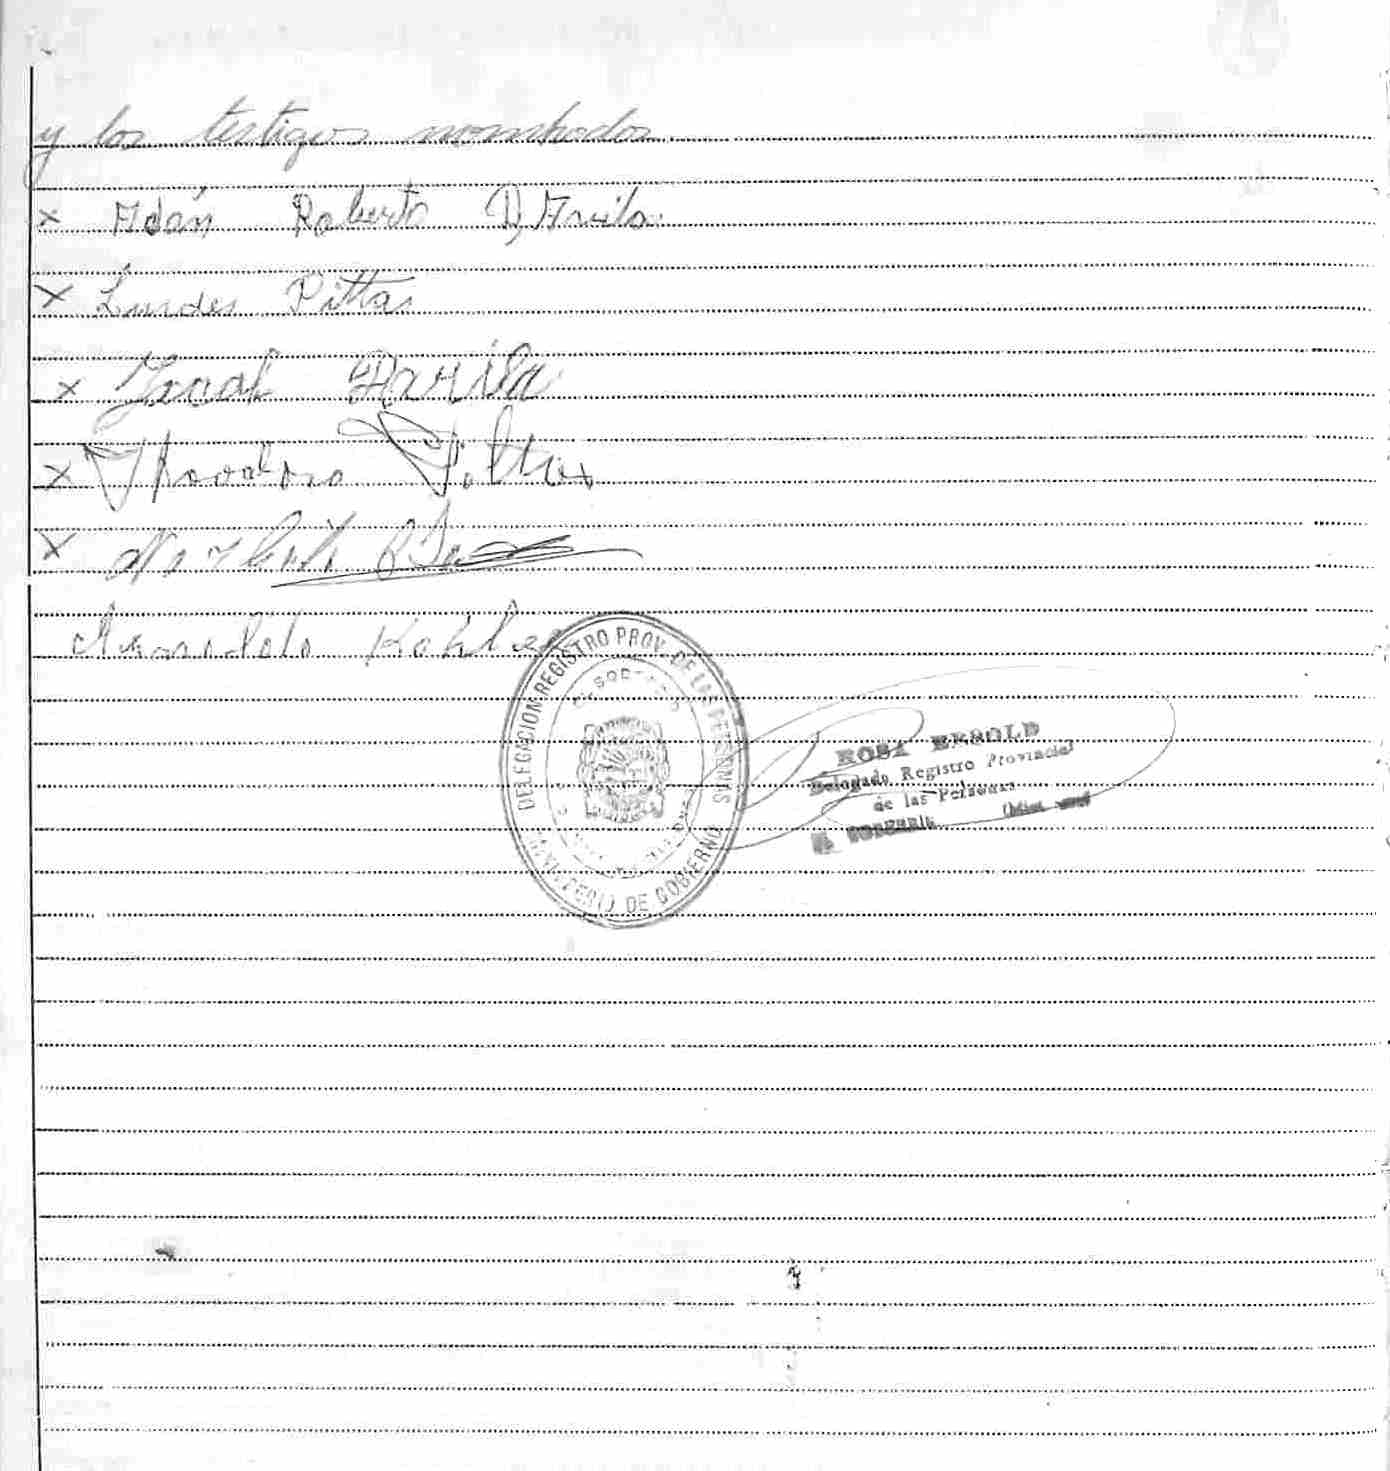 y los testigos nombrados.
x Adán Roberto D Avila
x Lurdes Pittas
x Jacob Davila
x Theodoro
x Norberto
Arnoldo Kohler
DELEGACION REGISTRO PROV. DE LAS PERSONAS
MINISTERIO DE GOBIERNO
ROSA
Delegado Registro Provincial
de las Personas
EL SOBERBIO